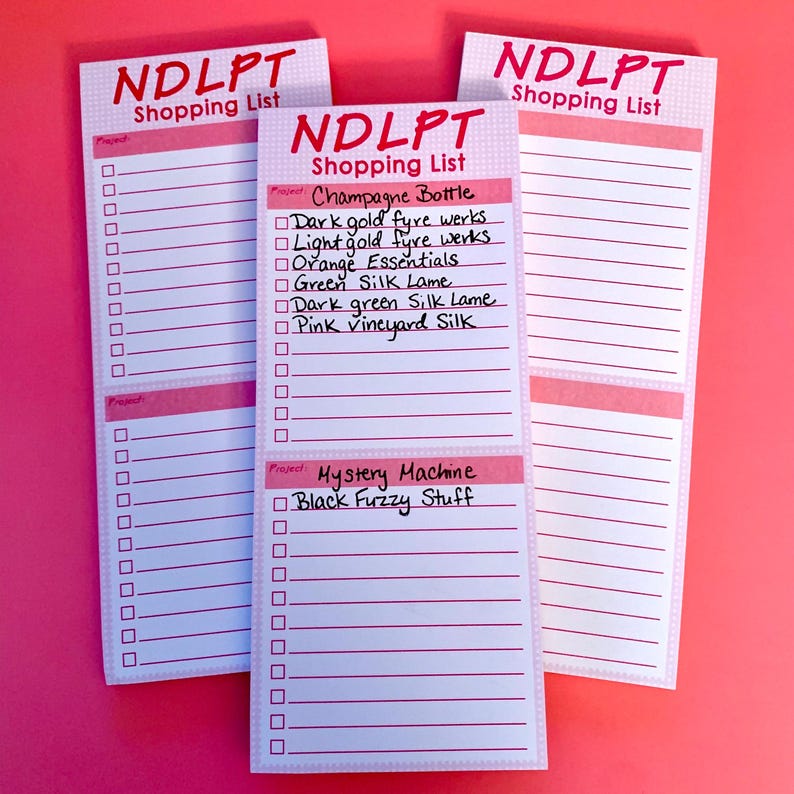 NDLPT
Shopping List
Project:
Project:
NDLPT
Shopping List
Project: Champagne Bottle
Dark gold fyre werks
Light gold fyre werks
Orange Essentials
Green Silk Lame
Dark green Silk Lame
Pink vineyard Silk
Project: Mystery Machine
Black Fuzzy Stuff
NDLPT
Shopping List